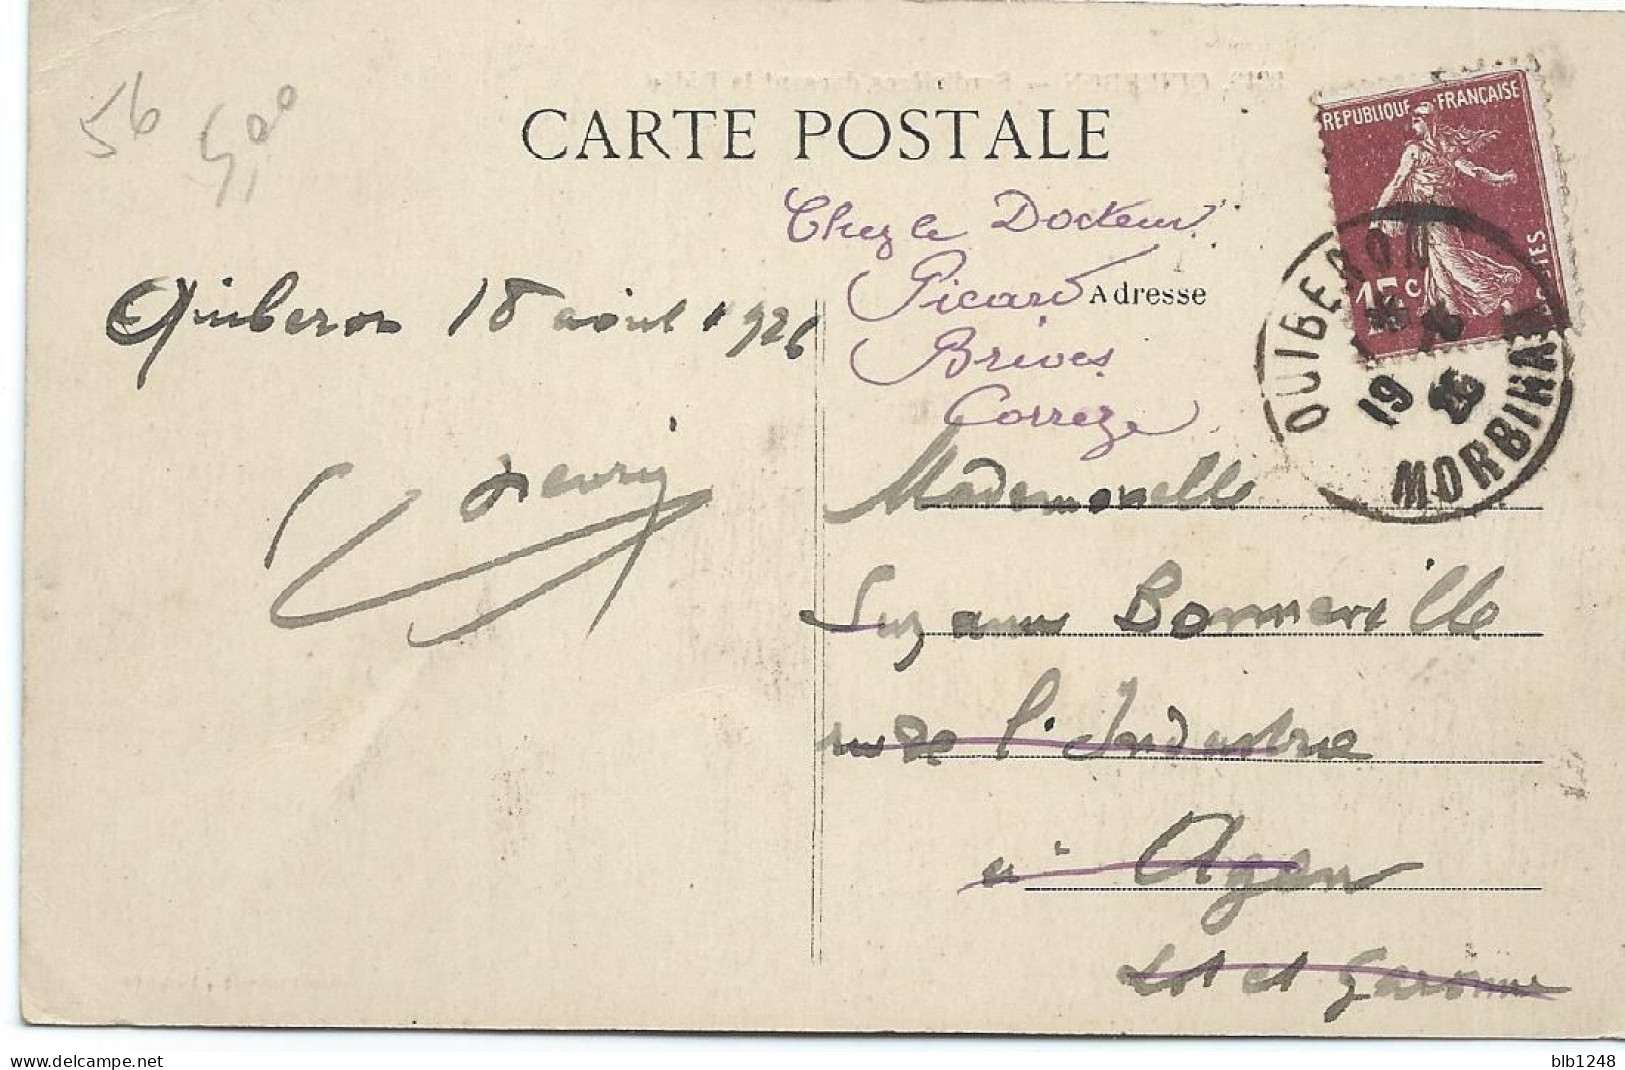 56
5,00
CARTE POSTALE
REPUBLIQUE FRANÇAISE
15c
QUIBERON
19
26
MORBIHAN
Chez le Docteur
Picard
Adresse
Brives
Correze
Quiberon 18 août 1926
Henry
Mademoiselle
Suzanne Bonneville
rue de l'Industrie
à Agen
Lot et Garonne
delcampe.net
blb1248